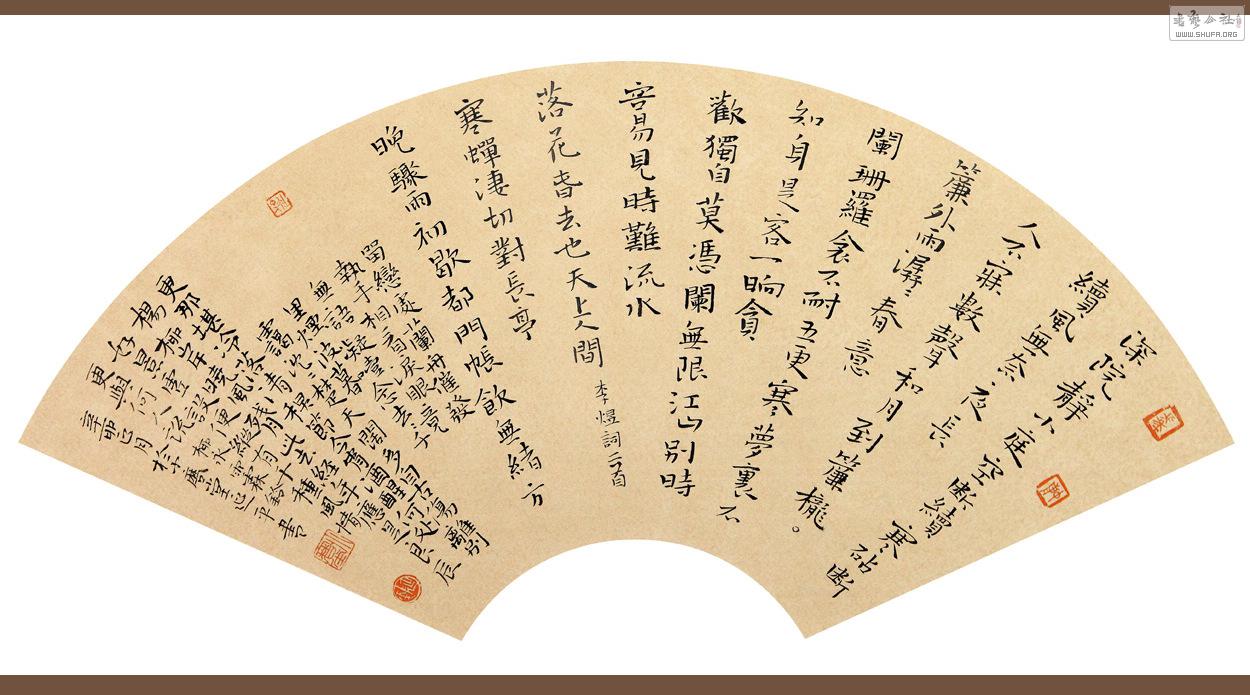 深院靜小庭空断續寒砧断
續風無奈夜長
人不寐數聲和月到簾櫳。
簾外雨潺潺春意
闌珊羅衾不耐五更寒夢裏不
知身是客一晌貪
歡獨自莫憑闌無限江山別時
容易見時難流水
落花春去也天上人間 李煜詞二首
寒蟬淒切對長亭
晚驟雨初歇都門帳飲無緒方
留戀處蘭舟催發
執手相看淚眼竟
無語凝噎念去去千
里煙波莫
靄沈沈楚天闊多情自古傷離別
更那堪冷落清秋節今宵酒醒何处
楊柳岸曉風殘月此去經年應是良辰
好景虛設便縱有千種風情
更與何人說 柳永雨霖鈴
辛卯七月
WWW.SHUFA.ORG